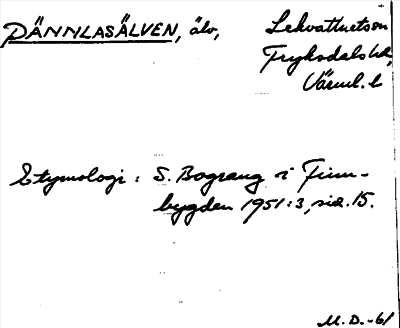 DÄNNLASÄLVEN, älv, Lekvattnetson
Fryksdals hd,
Värml. l
Etymologi: S. Bograng i Finn-
bygden 1951:3, sid. 15.
M. D. -61